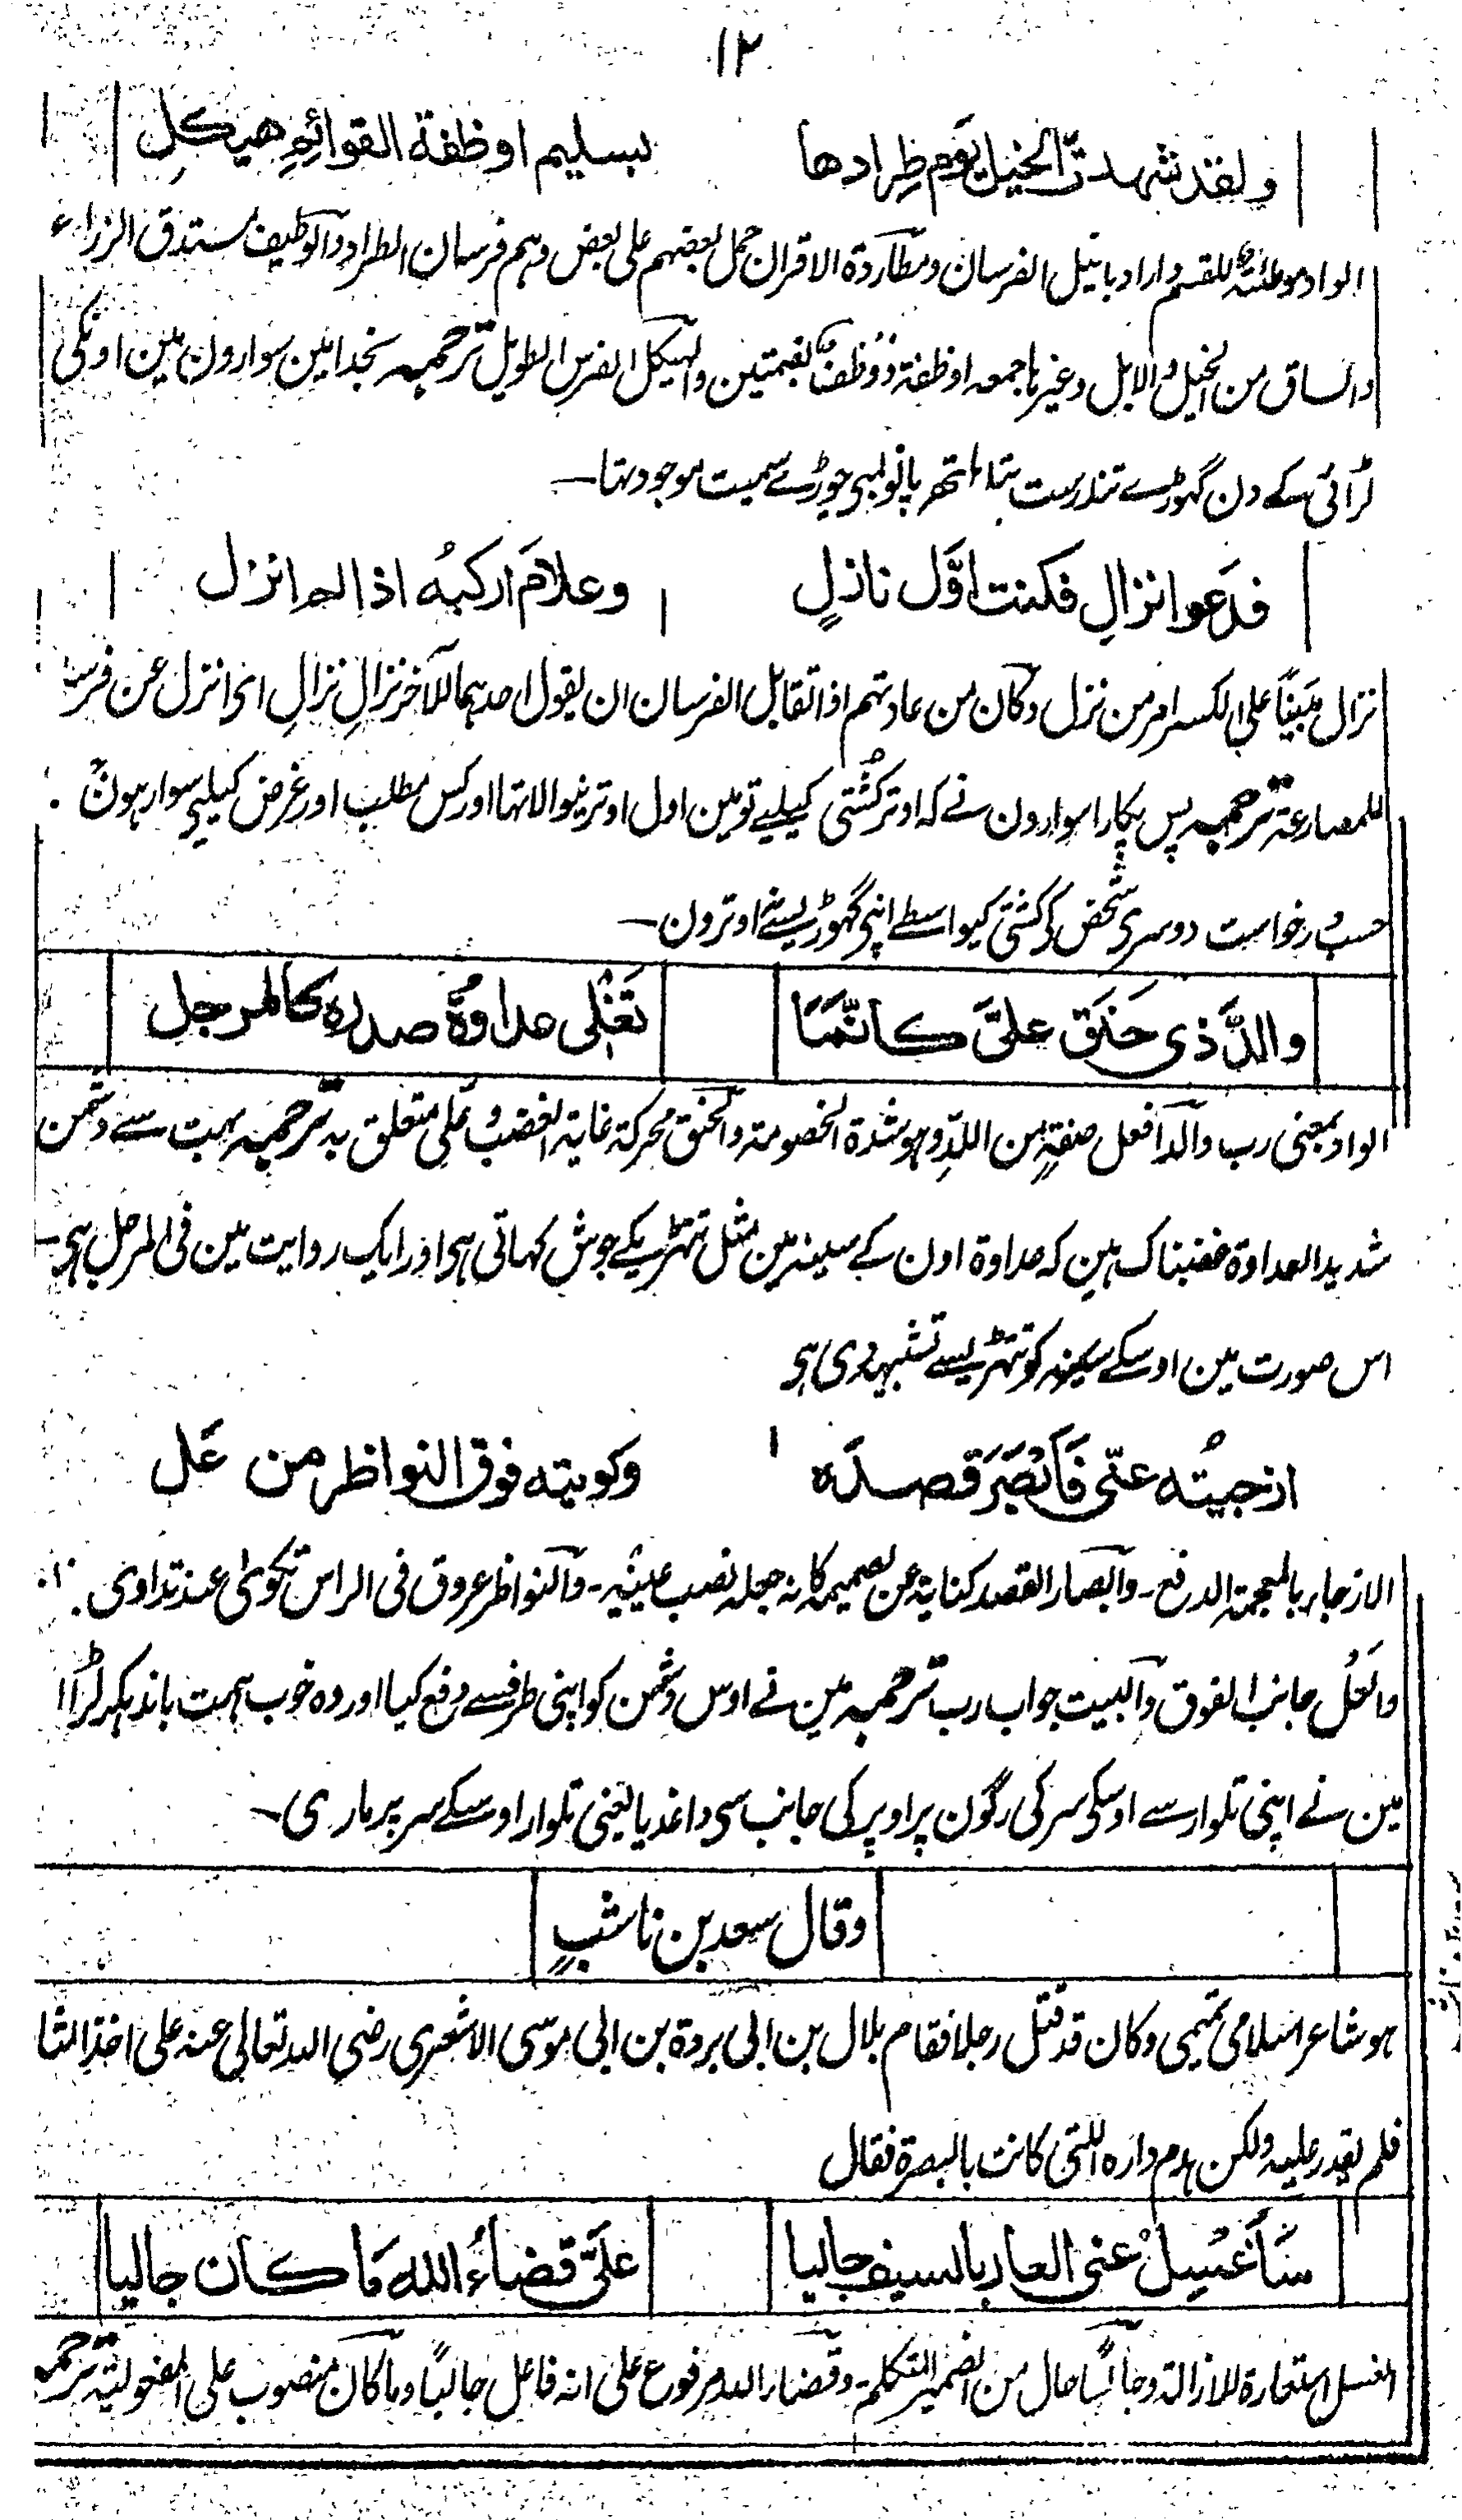 ۱۲
ولقد شهدتُ الخیل یَوم طِرادها بسلیم اوظفة القوائمِ هیکل
الواو موطئة للقسم واراد بالخیل الفرسان ومطاردة الاقران حمل بعضهم علی بعض وهم فرسان الطراد والوظیف مستدق الزراع
والساق من الخیل والابل وغیرها جمعه اوظفة ووُظُف بضمتین والهیکل الفرس الطویل ترجمہ بخدا مین سوارون مین اونکی
لڑائی کے دن گہوڑے تندرست ہتاتھ پانو لمبی چوڑے سمیت موجود تہا
فدَعوا نزالِ فکنت اوَّل نازلٍ وعلامَ ارکبُه اذا لم انزل
نزال مبنیاً علی الکسر امر من نزل وکان من عادتهم اذا تقابل الفرسان ان یقول احدهما للآخر نزالِ نزالِ ای انزل عن فرسک
للمصارعة ترجمہ پس پکارا سوارون نے کہ اوتر کُشتی کیلیے تو مین اول اوترنیوالا تہا اور کس مطلب اور غرض کیلیے سوار ہون
حسب درخواست دوسری شخص کر کشتی کیواسطے اپنی گہوڑیسے نہ اوترون
والدَّ ذی حَنَق علیَّ کانّمَا تَغْلی عداوةُ صدره کالمرجل
الواو بمعنی رب والد افعل صفةٍ من اللدد وهو شدة الخصومة والحنق محرکة غایة الغضب وعلی متعلق به ترجمہ بہت سے دشمن
شدید العداوة غضبناک ہین کہ عداوة اون کے سینہ مین مثل ہنڈیکے جوش کہاتی ہی اور ایک روایت مین فی المرجل ہی
اس صورت مین اوسکے سینہ کو ہنڈیسے تشبیہ دی ہی
ازجیتُه عنّی فَاَبْصَرَ قصدَه وکویته فوق النواظر من عَل
الازجاء بالمعجمة الدفع - وابصار القصد کنایة عن تصمیمه کانه جعله نصب عینیه - والنواظر عروق فی الراس تکوی عند تداوی
والعَلُ جانب الفوق والبیت جواب رب ترجمہ مین نے اوس دشمن کو اپنی طرفسے دفع کیا اور وہ خوب ہمت باندہکر لڑا
مین نے اپنی تلوار سے اوسکی سر کی رگون پر اوپر کی جانب سی داغدیا یعنی تلوار اوسکے سر پر ماری
وقال سعد بن ناشبٍ
هو شاعر اسلامی تمیمی وکان قد قتل رجلا فقام بلال بن ابی بردة بن ابی موسی الاشعری رضی الله تعالی عنه علی اخذ الثا
فلم یقدر علیه ولکن هدم داره اللتی کانت بالبصرة فقال
سَاَغسِلْ عنی العار بالسیف جالبا علَیَّ قضاءُ الله مَا کان جالبا
الغسل استعارة للازالة وجالباً حال من الضمیر المتکلم - وقضاء الله مرفوع علی انه فاعل جالباً وما کان منصوب علی المفعولیة ترجمہ